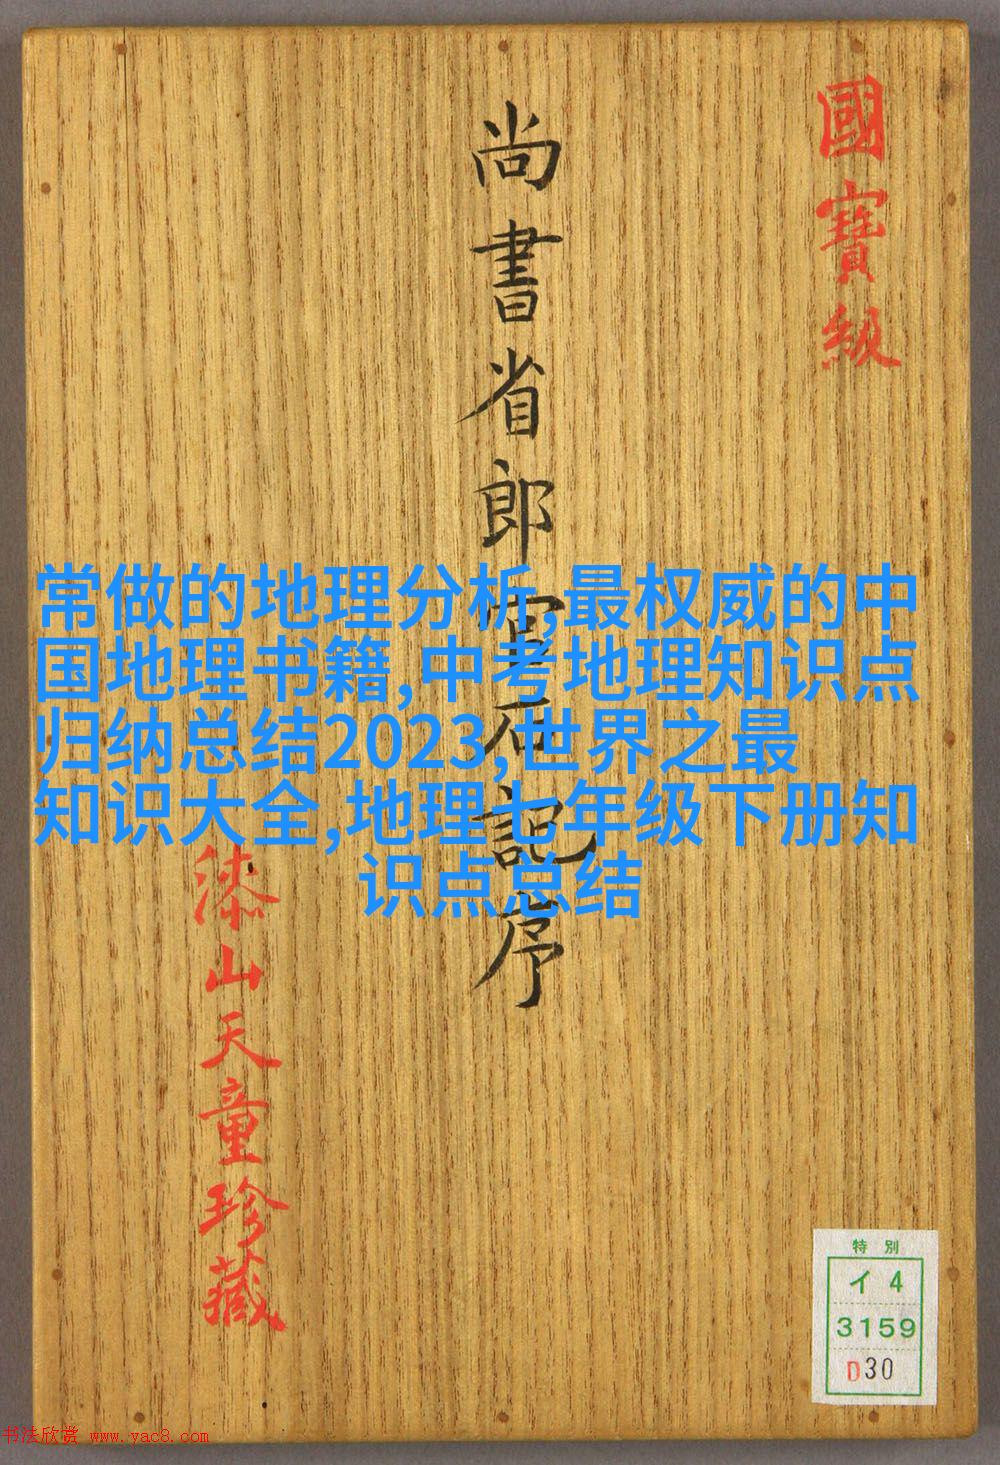 國寶級
尚書省郎官石記序
常做的地理分析,最权威的中
国地理书籍,中考地理知识点
归纳总结2023,世界之最
知识大全,地理七年级下册知
识点总结
漆山天童珍藏
特別
イ4
3159
D30
书法欣赏 www.yac8.com